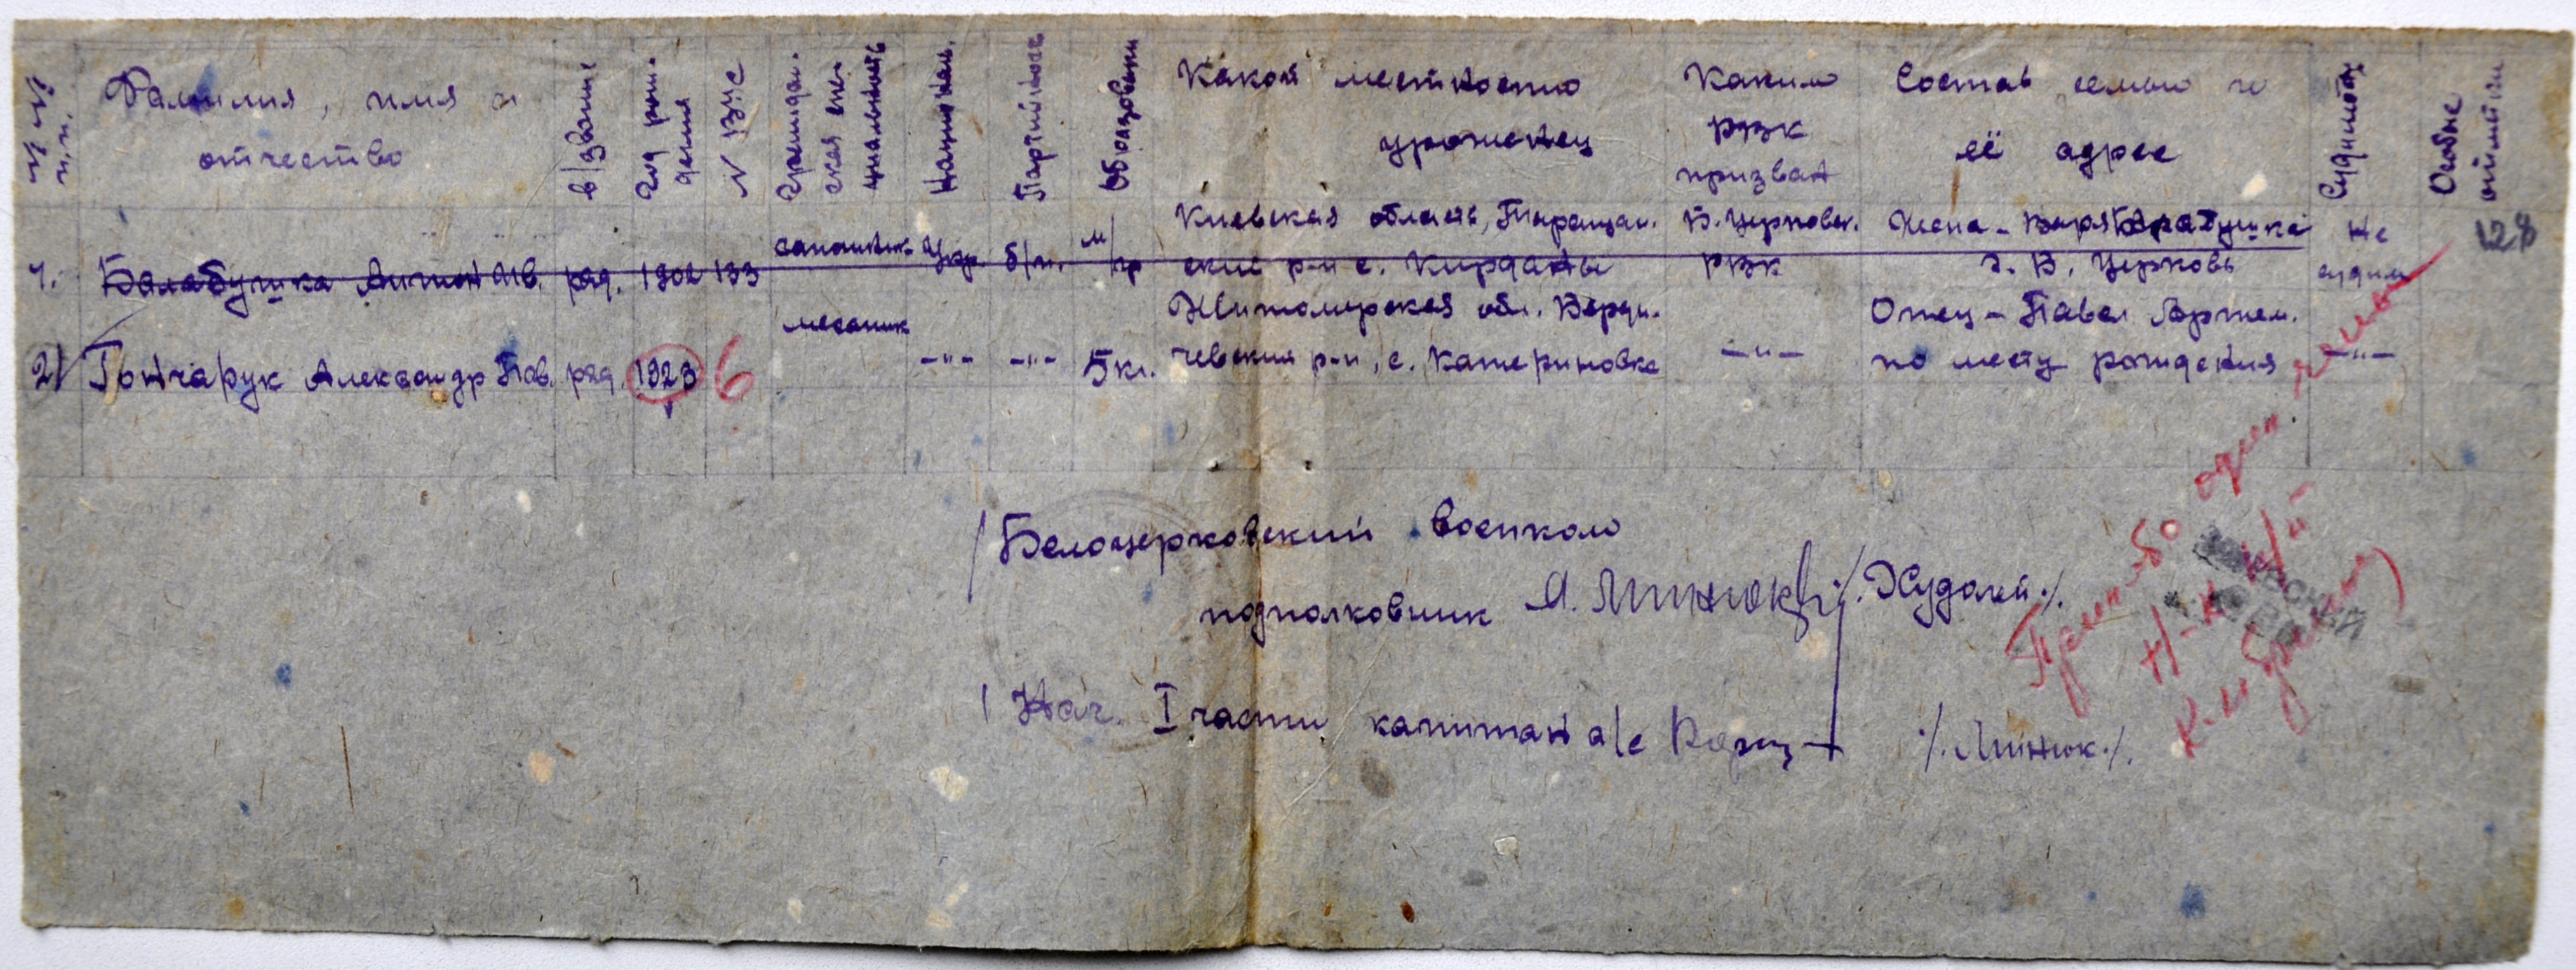 №№ п.п.
Фамилия, имя и отчество
в/звание
Год рождения
№ ВУС
Гражданская специальность
Национальн.
Партийность
Образование
Какой местностью уроженец
Каким РВК призван
Состав семьи и её адрес
Судимость
Особые отметки
128
1. Балабушка Антон Ив. ряд. 1902 133 сапожник Укр. б/п. м/гр Киевская область, Таращан. ский р-н с. Кирданы Б. Церковск. РВК Жена - Варя Балабушка г. Б. Церковь Не судим
2) Гончарук Александр Пав. ряд. 1923 6 механик -"- -"- 5 кл. Житомирская обл. Берди- чевский р-н, с. Катериновка -"- Отец - Павел Артем. по месту рождения -"-
Белоцерковский военком
подполковник /. Худолей ./
Нач. I части капитан а/с /. Минюк ./
один